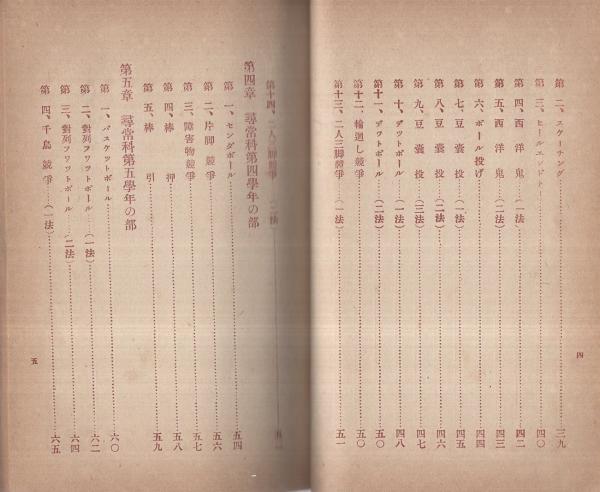 第二、スケーチング……三九
第三、ヒールエンドト……四〇
第四、西洋鬼（一法）……四二
第五、西洋鬼（二法）……四三
第六、ボール投げ……四四
第七、豆嚢投（一法）……四五
第八、豆嚢投（二法）……四六
第九、豆嚢投（三法）……四七
第十、デットボール（一法）……四八
第十一、デットボール（二法）……五〇
第十二、輪廻し競爭……五〇
第十三、二人三脚競爭（一法）……五一
四
第十四、二人三脚競爭（二法）……
第四章 尋常科第四學年の部
第一、センダボール……五四
第二、片脚競爭……五六
第三、障害物競爭……五七
第四、棒押……五八
第五、棒引……五九
第五章 尋常科第五學年の部
第一、バスケットボール……六〇
第二、對列フワットボール（一法）……六二
第三、對列フワットボール（二法）……六四
第四、千鳥競爭（一法）……六五
五